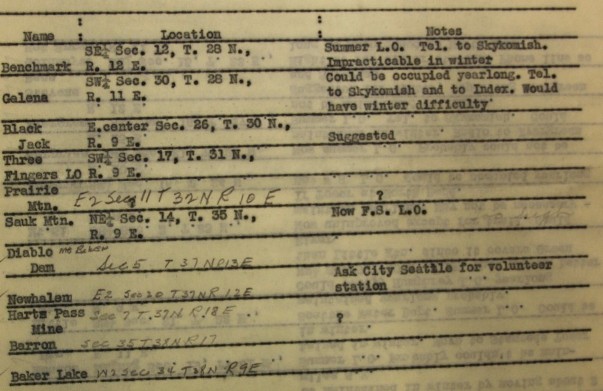 : :
Name : Location : Notes
SE¼ Sec. 12, T. 28 N., Summer L.O. Tel. to Skykomish.
Benchmark R. 12 E. Impracticable in winter
SW¼ Sec. 30, T. 28 N., Could be occupied yearlong. Tel.
Galena R. 11 E. to Skykomish and to Index. Would
have winter difficulty
Black E.center Sec. 26, T. 30 N.,
Jack R. 9 E. Suggested
Three SW¼ Sec. 17, T. 31 N.,
Fingers LO R. 9 E.
Prairie
Mtn. E2 Sec 11 T 32N R 10 E ?
Sauk Mtn. NE¼ Sec. 14, T. 35 N., Now F.S. L.O.
R. 9 E.
Diablo
Dam Sec 5 T 37N R13E Ask City Seattle for volunteer
station
Newhalem E2 Sec 20 T37N R 12E
Harts Pass Sec 7 T.37N R 18E ?
Mine
Barron Sec 35 T38N R17
Baker Lake W2 Sec 34 T38N R9E